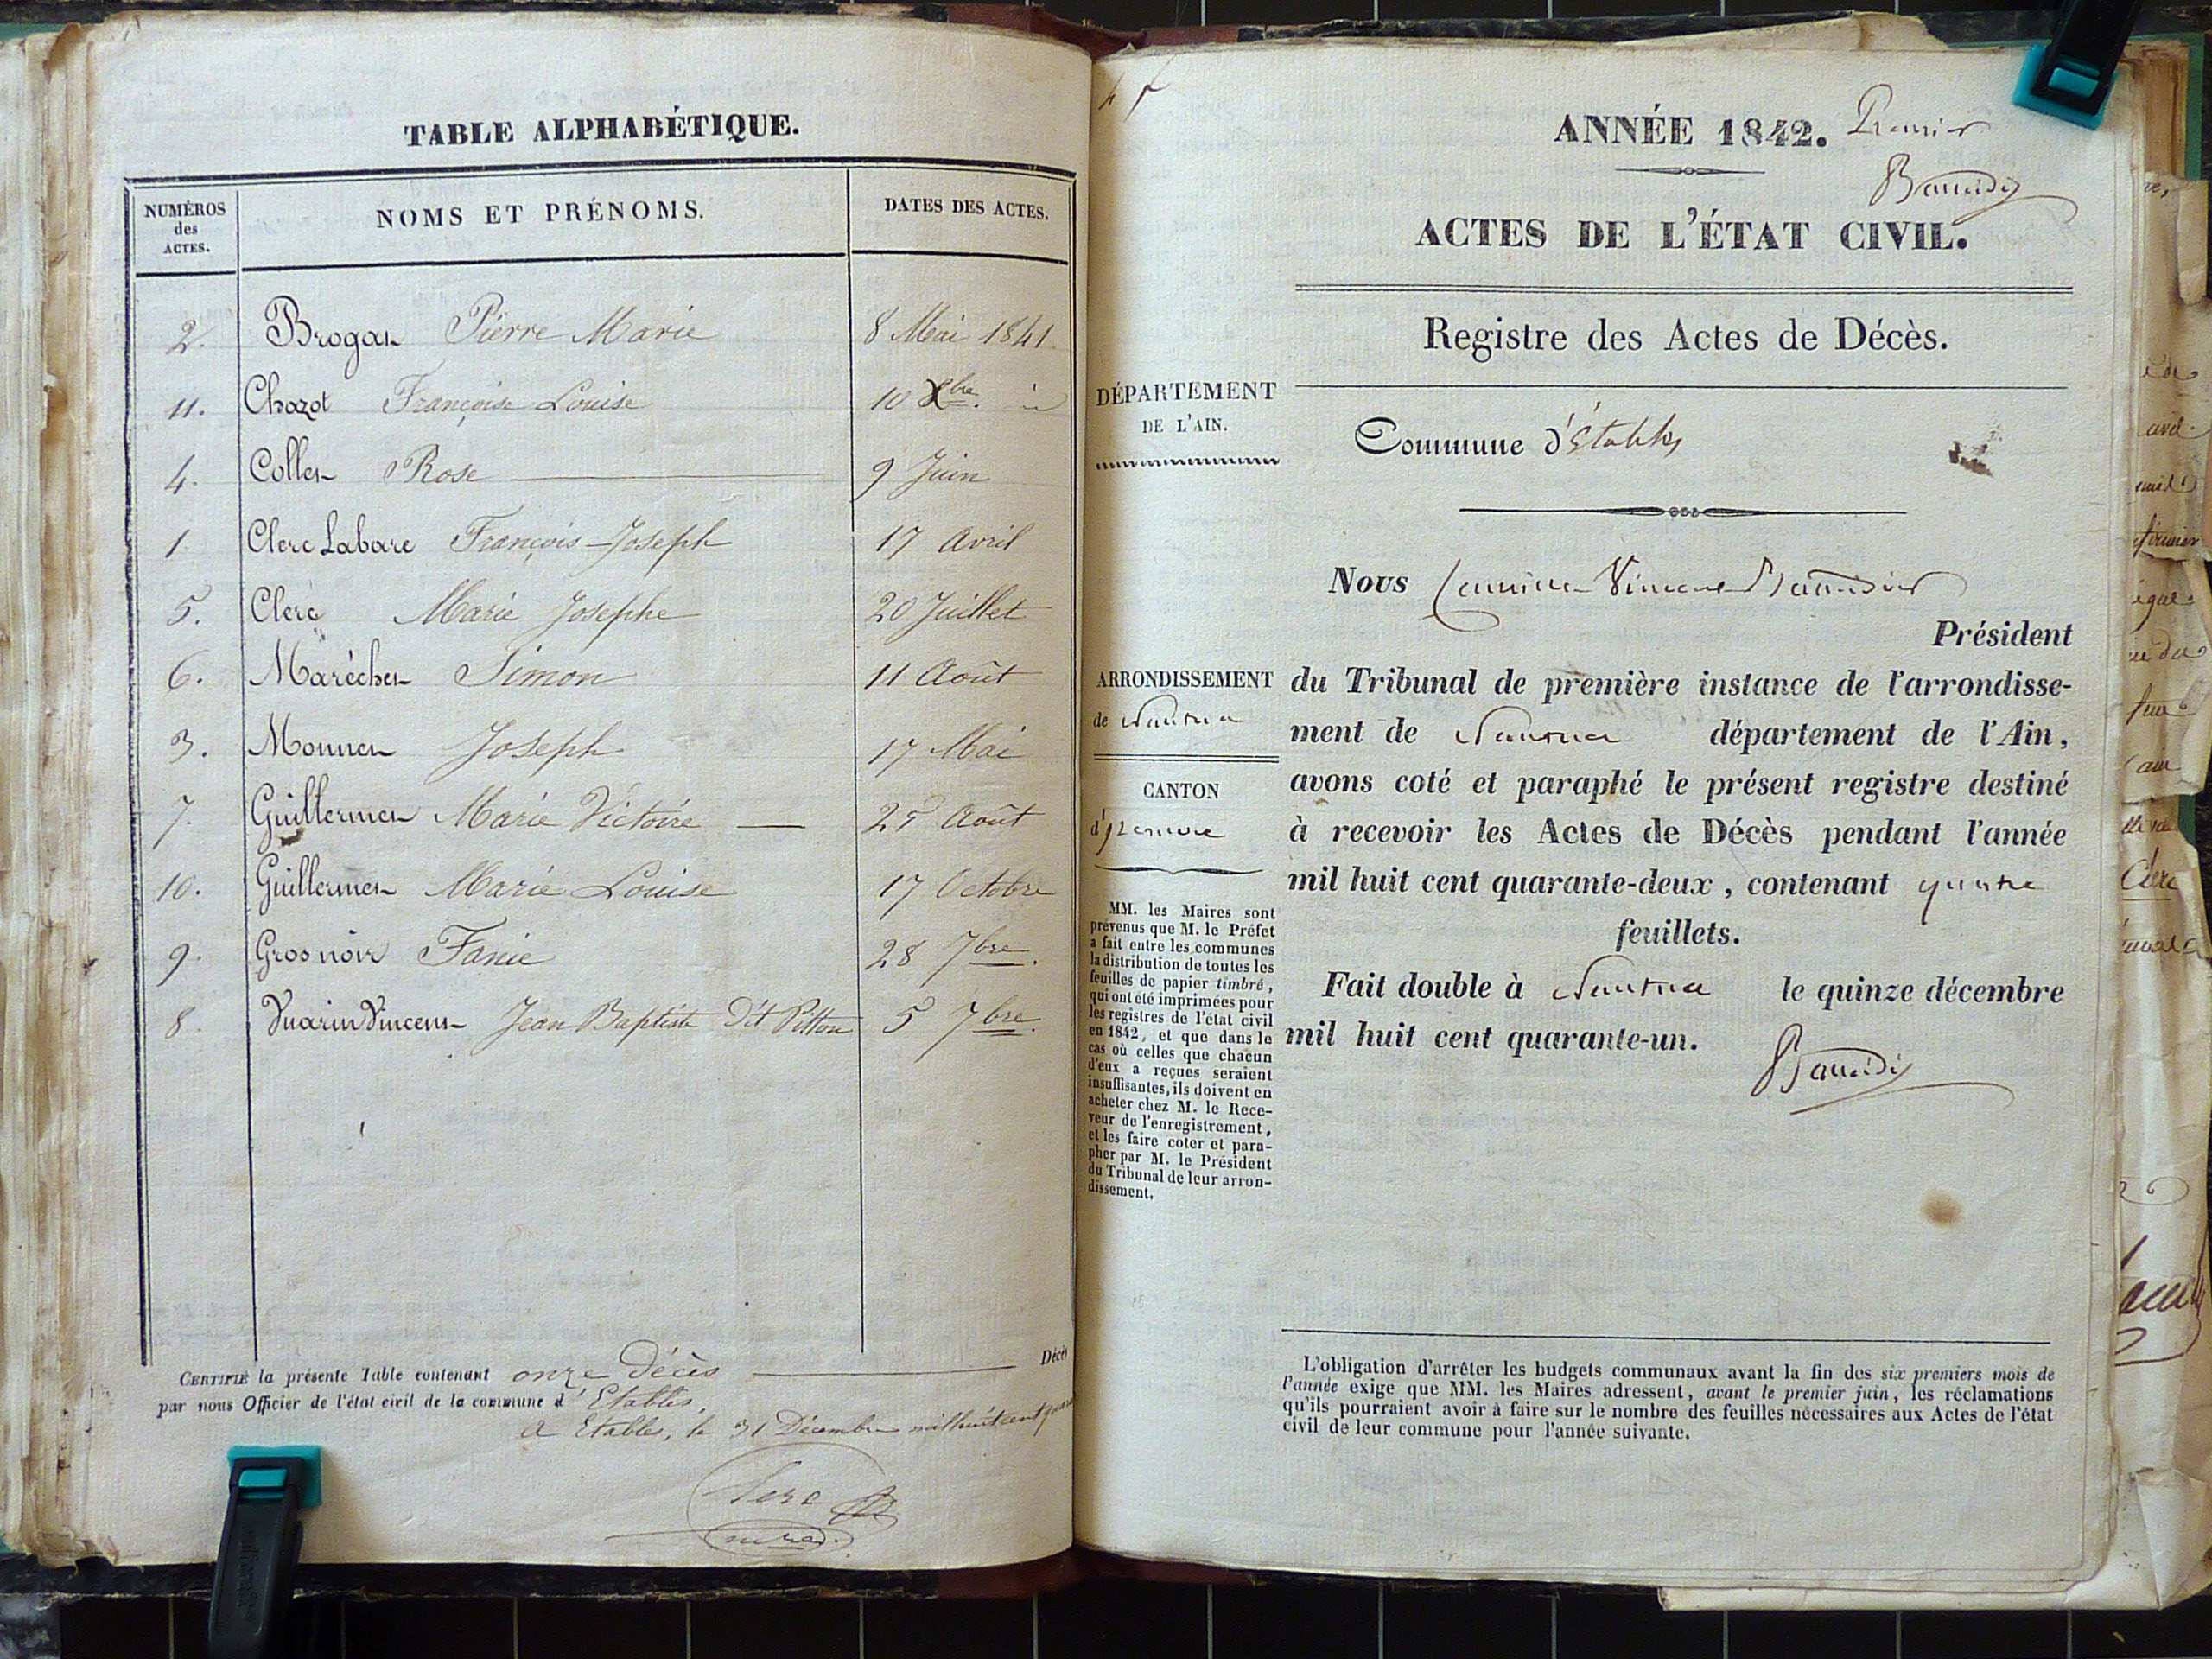 TABLE ALPHABÉTIQUE.
NUMÉROS des ACTES.
NOMS ET PRÉNOMS.
DATES DES ACTES.
2. Brogat Pierre Marie 8 Mai 1841.
11. Chozot Françoise Louise 10 Xbre. id
4. Collet Rose 9 Juin
1 Clerc Labare François-Joseph 17 Avril
5. Clerc Marie Josephe 20 Juillet
6. Maréchet Simon 11 Août
3. Monnet Joseph 17 Mai
7. Guillermet Marie Victoire Août
10. Guillermet Marie Louise 17 Octobre
9. Gros noir Fanie 28 7bre.
8. Vuarin Vincent Jean Baptiste Dit Pitton 5 7bre.
CERTIFIÉ la présente Table contenant onze Décès Décès
par nous Officier de l'état civil de la commune d'Etables,
a Etables, le 31 Décembre mil huit cent
Clerc
ANNÉE 1842. Premier
ACTES DE L'ÉTAT CIVIL.
Registre des Actes de Décès.
DÉPARTEMENT
DE L'AIN.
Commune d'Étables
Nous Camille Vincent
Président
ARRONDISSEMENT
de Nantua
CANTON
d'Izernore
du Tribunal de première instance de l'arrondisse-
ment de Nantua département de l'Ain,
avons coté et paraphé le présent registre destiné
à recevoir les Actes de Décès pendant l'année
mil huit cent quarante-deux, contenant quatre
feuillets.
Fait double à Nantua le quinze décembre
mil huit cent quarante-un.
MM. les Maires sont
prévenus que M. le Préfet
a fait entre les communes
la distribution de toutes les
feuilles de papier timbré,
qui ont été imprimées pour
les registres de l'état civil
en 1842, et que dans le
cas où celles que chacun
d'eux a reçues seraient
insuffisantes, ils doivent en
acheter chez M. le Rece-
veur de l'enregistrement,
et les faire coter et para-
pher par M. le Président
du Tribunal de leur arron-
dissement.
L'obligation d'arrêter les budgets communaux avant la fin des six premiers mois de
l'année exige que MM. les Maires adressent, avant le premier juin, les réclamations
qu'ils pourraient avoir à faire sur le nombre des feuilles nécessaires aux Actes de l'état
civil de leur commune pour l'année suivante.